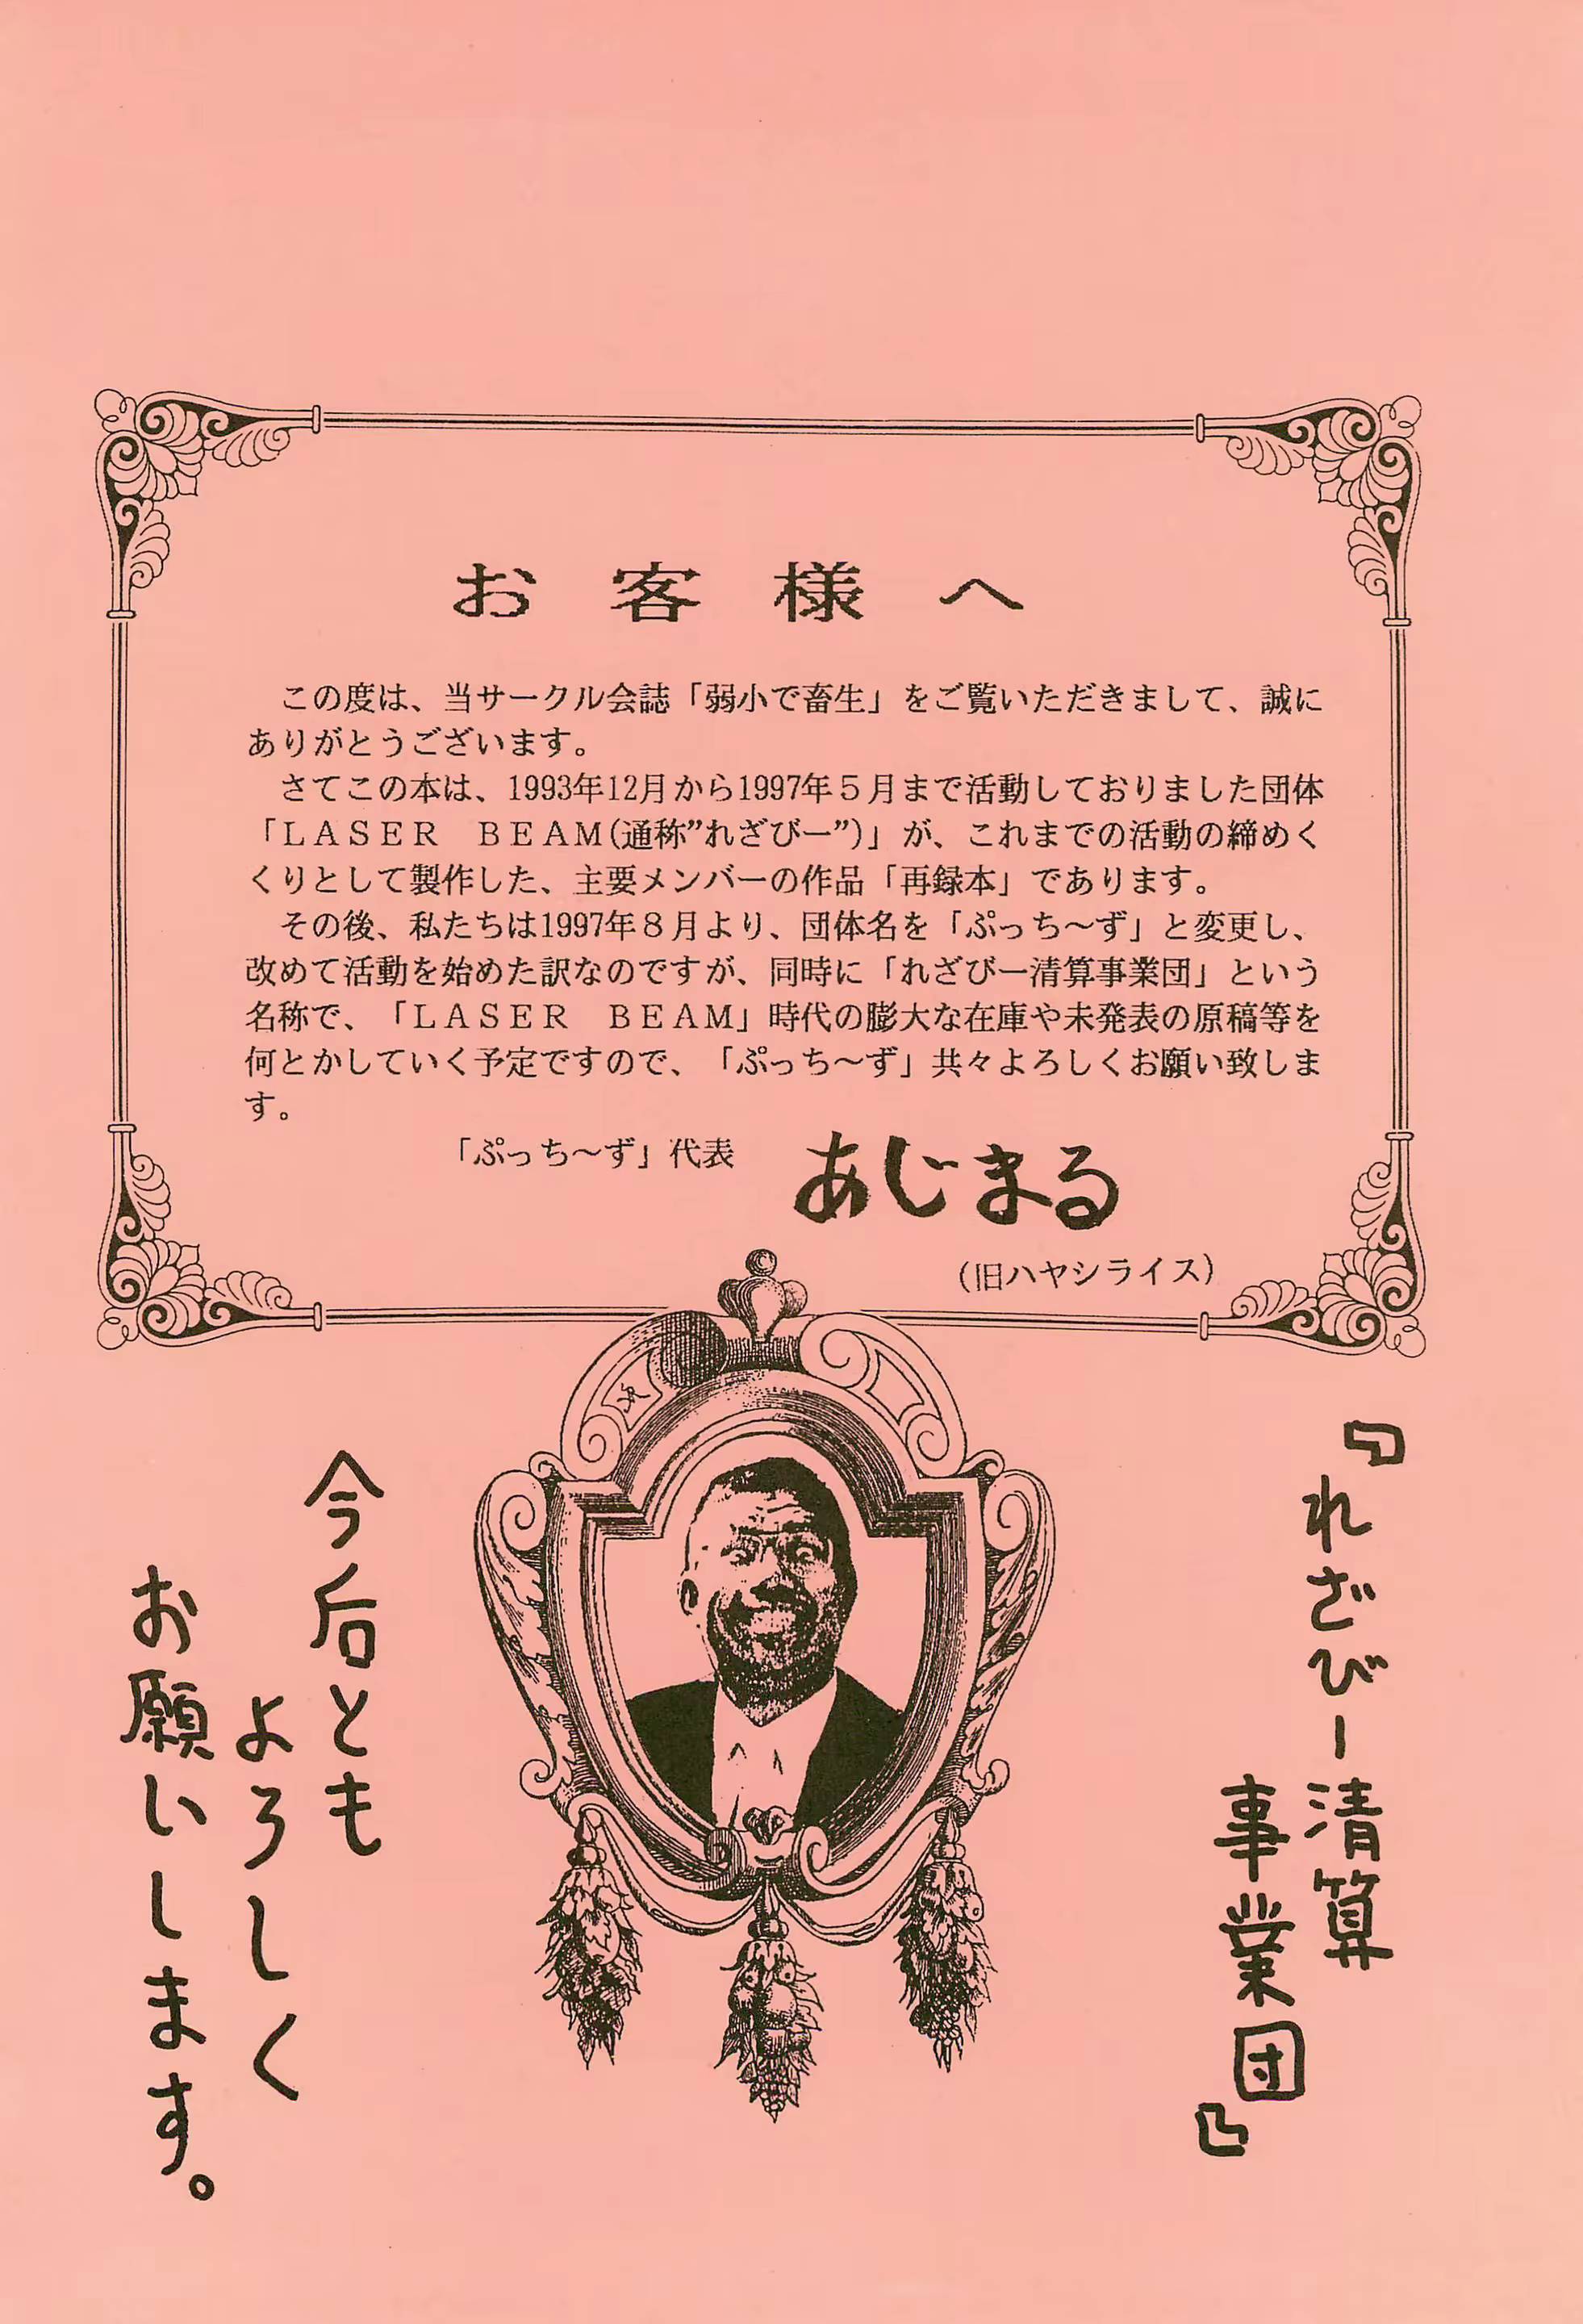 お客様へ
この度は、当サークル会誌「弱小で畜生」をご覧いただきまして、誠に
ありがとうございます。
さてこの本は、1993年12月から1997年５月まで活動しておりました団体
「ＬＡＳＥＲ　ＢＥＡＭ(通称”れざびー”)」が、これまでの活動の締めく
くりとして製作した、主要メンバーの作品「再録本」であります。
その後、私たちは1997年８月より、団体名を「ぷっち～ず」と変更し、
改めて活動を始めた訳なのですが、同時に「れざびー清算事業団」という
名称で、「ＬＡＳＥＲ　ＢＥＡＭ」時代の膨大な在庫や未発表の原稿等を
何とかしていく予定ですので、「ぷっち～ず」共々よろしくお願い致しま
す。
「ぷっち～ず」代表　あじまる
(旧ハヤシライス)
『れざびー清算
事業団』
今后とも
よろしく
お願いします。